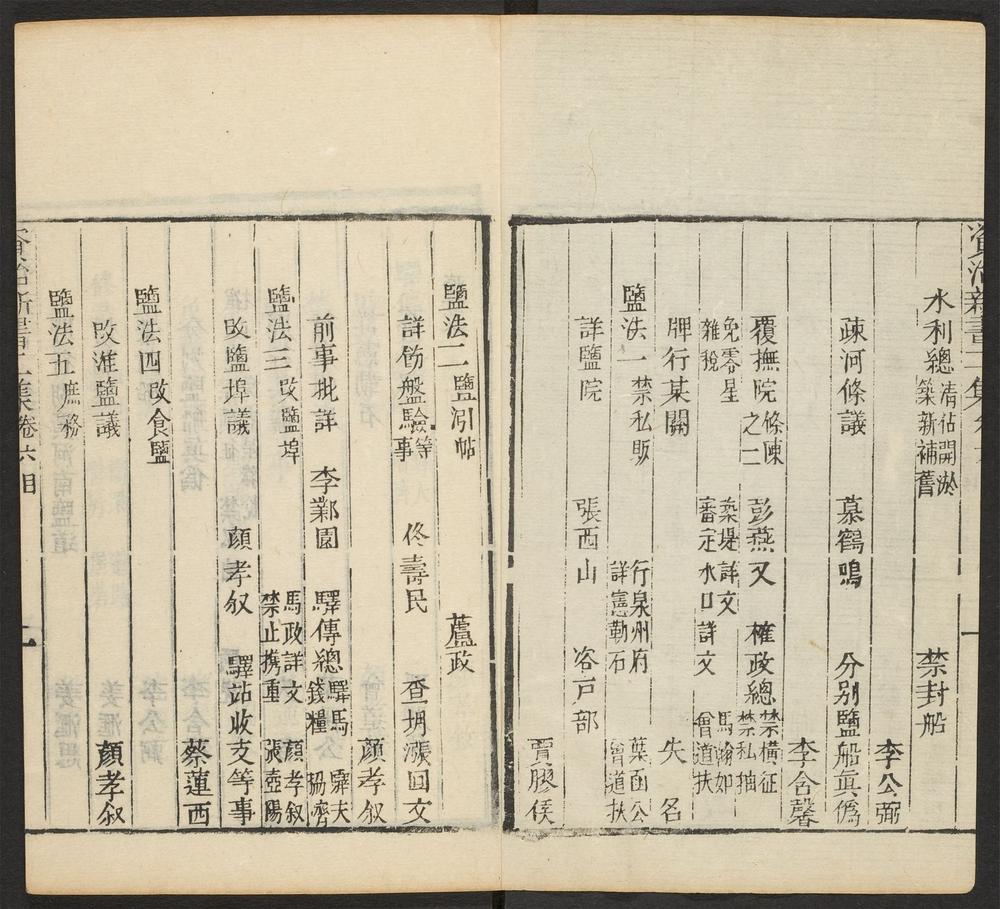 資治新書二集卷六 一
水利總 清佔開淤 築新補舊 禁封船
李公弼
疎河條議 慕鶴鳴 分別鹽船眞僞
李含馨
覆撫院條陳之二 彭燕又 榷政總 禁橫征 禁私抽
免零星雜稅 築堤詳文 審定水口詳文 馬翰如 曾道扶
牌行某關 失名
鹽法一 禁私販 行泉州府 詳憲勒石 葉函公 曾道扶
詳鹽院 張西山 咨戸部
賈膠侯
鹽法二 鹽引帖 蘆政
詳飭盤驗等事 佟壽民 查坍漲回文
顏孝叙
前事批詳 李鄴園 驛傳總 驛馬 驛夫 錢糧 協濟
鹽法三 攺鹽埠 馬政詳文 禁止携重 顏孝叙 張壺陽
攺鹽埠議 顏孝叙 驛站收支等事
蔡蓮西
鹽法四 攺食鹽
攺淮鹽議 顏孝叙
鹽法五 庶務
資治新書二集卷六目 二